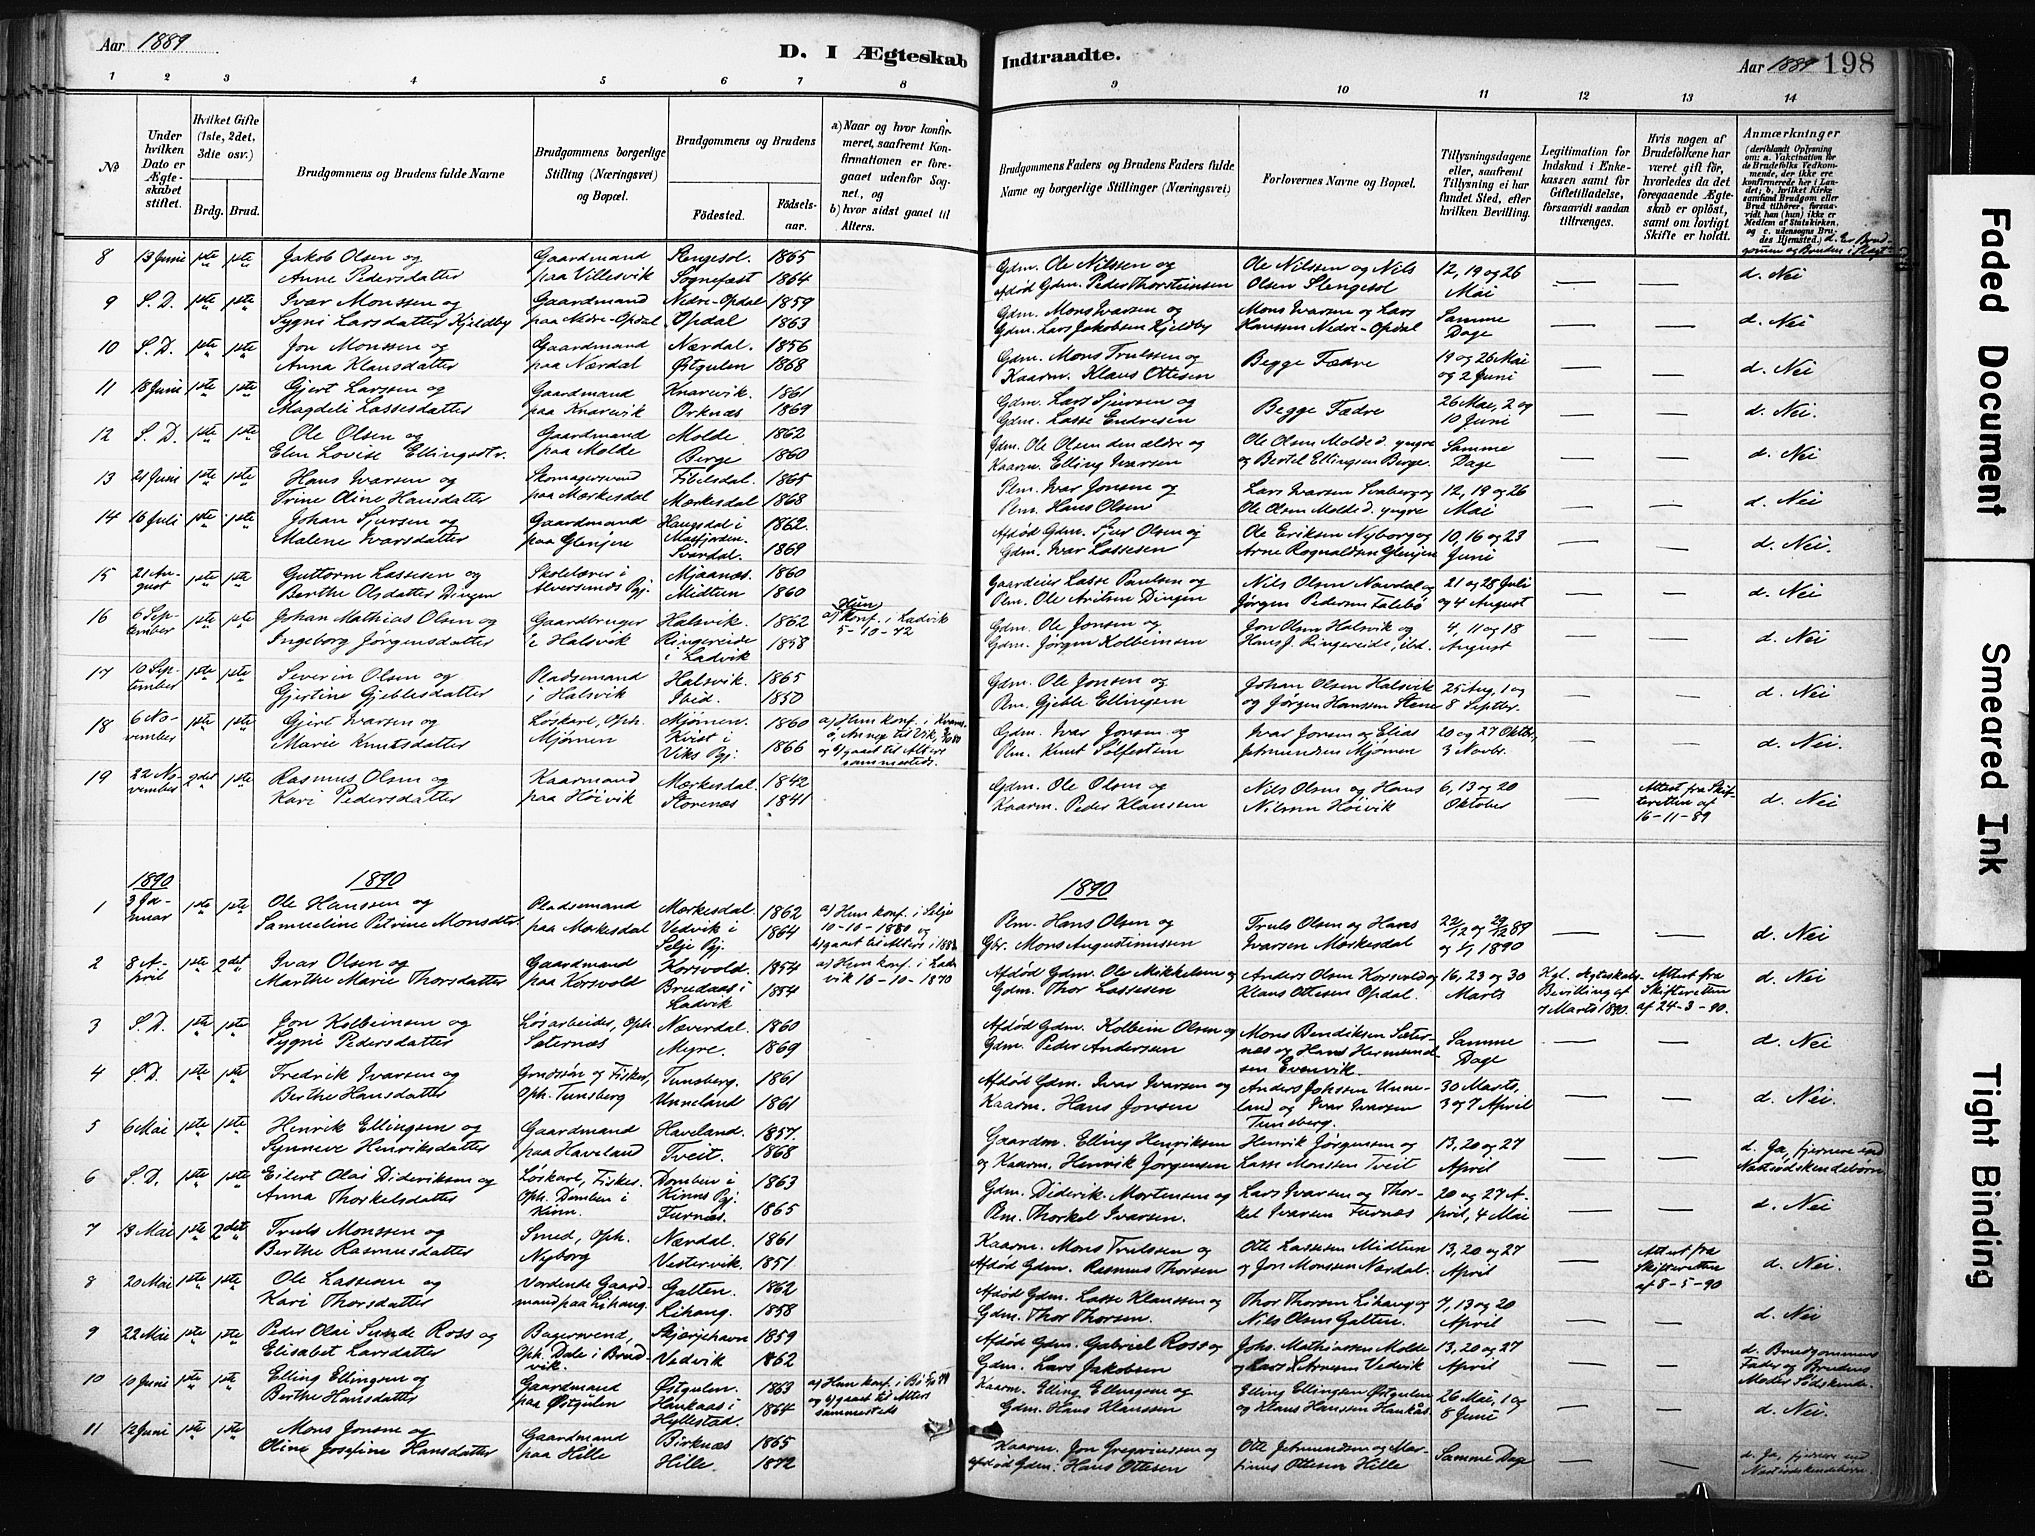 Aar 1889
D. I Ægteskab Indtraadte.
Aar 1889 198
1 2 3 4 5 6 7 8 9 10 11 12 13 14
№
Under hvilken Dato er Ægteskabet stiftet.
Hvilket Gifte (1ste, 2det, 3die osv.)
Brdg. Brud.
Brudgommens og Brudens fulde Navne
Brudgommens borgerlige Stilling (Næringsvei) og Bopæl.
Brudgommens og Brudens
Fødested.
Fødselsaar.
a) Naar og hvor konfirmeret, saafremt Konfirmationen er foregaaet udenfor Sognet, og
b) hvor sidst gaaet til Alters.
Brudgommens Faders og Brudens Faders fulde Navne og borgerlige Stillinger (Næringsvei)
Forlovernes Navne og Bopæl.
Tillysningsdagene eller, saafremt Tillysning ei har fundet Sted, efter hvilken Bevilling.
Legitimation for Indskud i Enkekassen samt for Giftetilladelse, forsaavidt saadan tiltrænges.
Hvis nogen af Brudefolkene har været gift før, hvorledes da det foregaaende Ægteskab er opløst, samt om lovligt Skifte er holdt.
Anmærkninger (deriblandt Oplysning om: a. Vakcination for de Brudefolks Vedkommende, der ikke ere konfirmerede her i Landet; b. hvilket Kirkesamfund Brudgom eller Brud tilhører, forsaavidt han (hun) ikke er Medlem af Statskirken, og c. udensogns Brudes Hjemsted.) d. Er Brudgommen og Bruden i Slægt
8 13 Juni 1ste 1ste Jakob Olsen og Gaardmand Slengesol 1865 Gdm. Ole Nilssen og Ole Nilssen og Nils 12, 19 og 26 — — d. Nei
Anne Pedersdatter paa Villesvik Sognefæst 1864 afdød Gdm. Peder Thorsteinsen Olsen Slengesol Mai
9 S. D. 1ste 1ste Ivar Monssen og Gaardmand Nedre-Opdal 1859 Gdm. Mons Ivarsen og Mons Ivarsen og Lars Samme — — d. Nei
Sygni Larsdatter Kjeldby paa Nedre-Opdal Opdal 1863 Gdm. Lars Jakobsen Kjeldby Hanssen Nedre-Opdal Dage
10 S. D. 1ste 1ste Jon Monssen og Gaardmand Nærdal. 1856 Gdm. Mons Trulssen og Begge Fædre 19 og 26 Mai — — d. Nei
Anna Klausdatter paa Nærdal Østgulen 1868 Kaarm. Klaus Ottesen og 2 Juni
11 18 Juni 1ste 1ste Gjert Larsen og Gaardmand Knarvik. 1861 Gdm. Lars Sjursen og Begge Fædre 26 Mai, 2 og — — d. Nei.
Magdeli Lassesdatter paa Knarvik Orknæs 1869 Gdm. Lasse Endresen 10 Juni
12 S. D. 1ste 1ste Ole Olsen og Gaardmand Molde. 1862 Gdm. Ole Olsen den ældre og Ole Olsen Molde d. yngre Samme — — d. Nei
Elen Lovise Ellingsdtr. paa Molde Berge 1860 Kaarm. Elling Ivarsen og Bertel Ellingsen Berge. Dage
13 21 Juni 1ste 1ste Hans Ivarsen og Skomagersvend 1865 Plm. Ivar Jonsen og Lars Ivarsen Svaberg og 12, 19 og 26 — — d. Nei
Trine Oline Hansdatter paa Mærkesdal Mærkesdal 1868 Plm. Hans Olsen Ole Olsen Molde d. yngre Mai
14 16 Juli 1ste 1ste Johan Sjursen og Gaardmand Haugsdal i Masfjorden. 1862. Afdød Gdm. Sjur Olsen og Ole Eriksen Nyborg og 10, 16 og 23 — — d. Nei.
Malene Ivarsdatter paa Glenjen Svardal. 1869 Gdm. Ivar Lassesen Arne Rognaldsen Glenjen Juni
15 21 August 1ste 1ste Guttorm Lassesen og Skolelærer i Mjaanæs. 1860 Gaardeier Lasse Paulsen og Nils Olsen Nævdal og 21 og 28 Juli — — d. Nei
Berthe Olsdatter Dingen Alversunds Pgj. Midtun 1860 Plm. Ole Dingen Jørgen Pedersen og 4 August
16 6 September 1ste 1ste Johan Mathias Olsen og Gaardbruger Halsvik. 1862 a) Hun konf. i Ladvik Gdm. Ole Jonsen og Jon Olsen Halsvik og 4, 11 og 18 — — d. Nei
Ingeborg Jørgensdatter i Halsvik Ringereide i Ladvik 1858 5-10-72 Gdm. Jørgen Kolbeinsen Hans J. Ringereide, ibd. August
17 10 September 1ste 1ste Severin Olsen og Pladsemand Halsvik. 1865 Gdm. Ole Jonsen og Johan Olsen Halsvik 25 Aug, 1 og — — d. Nei
Gjertine Gjeblesdatter i Halsvik Ibid. 1850 Plm. Gjeble Ellingsen og Jørgen Hanssen Stene 8 Septbr.
18 6 November 1ste 1ste Gjert Ivarsen og Løskarl, Oph. Mjømen. 1860 Gdm. Ivar Jonsen og Ivar Jonsen og Elias 20 og 27 Oktbr, — — d. Nei.
Marie Knutsdatter Mjømen Kvist i Viks Pgj. 1866 og b) gaaet til Alters sammesteds. Plm. Knut Sølfestsen Mjømen 3 Novbr.
19 22 November 2det 1ste Rasmus Olsen og Kaarmand Mærkesdal. 1842 Gdm. Ole Olsen og Nils Olsen og Hans 6, 13 og 20 — Attest fra Skifteretten af d. Nei
Kari Pedersdatter paa Høivik Storenæs 1841 Kaarm. Peder Klaussen Nilssen Høivik Oktober 16-11-89
1890 1890 1890
1 3 Januar 1ste 1ste Ole Hanssen og Pladsemand Mærkesdal. 1862 a) Hun konf. i Selje Plm. Hans Olsen og Truls Olsen og Hans 22/12 og 29/12 89 — — d. Nei
Samueline Petrine Monsdtr paa Mærkesdal Vedvik i Selje Pgj. 1864 10-10-1880 og b) gaaet til Alters i Gbr. Mons Augustinussen Ivarsen Mærkesdal og 1/1 1890
2 8 April 1ste 2det Ivar Olsen og Gaardmand Korsvold. 1854 a) Hun konf. i Lad- Afdød Gdm. Ole Mikkelsen og Anders Olsen Korsvold og 16, 23 og 30 Kgl. Ægteskabs- Attest fra d. Nei
Marthe Marie Thorsdatter paa Korsvold Brudaas i Ladvik 1854 vik 16-10-1870 Gdm. Thor Lassesen Klaus Ottesen Opdal. Marts Bevilling af 7 Marts 1890. Skifteretten af 24-3-90.
3 S. D. 1ste 1ste Jon Kolbeinsen og Løsarbeider, Oph. Næverdal. 1860 Afdød Gdm. Kolbein Olsen og Mons Bendiksen Sæter- Samme — — d. Nei
Sygni Pedersdatter Sæternæs Myre. 1869 Gdm. Peder Andersen næs og Hans Hermundsen Evenvik. Dage
4 S. D. 1ste 1ste Fredrik Ivarsen og Grndsøn og Fisker, Tunsberg. 1861 Afdød Gdm. Ivar Ivarsen og Anders Johssen Unne- 30 Marts, — — d. Nei.
Berthe Hansdatter Oph. Tunsberg Unneland 1861 Kaarm. Hans Jonsen land og Ivar Ivarsen Tunsberg. 3 og 7 April
5 6 Mai 1ste 1ste Henrik Ellingsen og Gaardmand Haveland. 1857. Gaardm. Elling Henriksen Henrik Jørgensen og 13, 20 og 27 — — d. Ja, fjernere end
Synneve Henriksdatter paa Haveland Tveit. 1868 og Kaarm. Henrik Jørgensen Lasse Monssen Tveit April Næstsødskendebørn
6 S. D. 1ste 1ste Eilert Olai Dideriksen og Løskarl, Fisker Domben i Kinns Pgj. 1863 Gdm. Diderik Mortensen og Lars Ivarsen og Thor- 20 og 27 A- — — d. Nei
Anna Thorkelsdatter Oph. Domben i Kinn. Furnæs. 1865 Plm. Thorkel Ivarsen. kel Ivarsen Furnæs pril, 4 Mai
7 13 Mai 1ste 2det Truls Monssen og Smed, Oph. Nærdal. 1861 Kaarm. Mons Trulssen og Otte Lassesen Midtun 13, 20 og 27 — Attest fra Skifteretten d. Nei.
Berthe Rasmusdatter Nyborg Vestervik. 1851 Afdød Gdm. Rasmus Thorsen og Jon Monssen Nærdal. April af 8-5-90
8 20 Mai 1ste 1ste Ole Lassesen og Vordende Gaard- Galten. 1862 Afdød Gdm. Lasse Klaussen og Thor Thorsen Lihaug og 7, 13 og 20 — — d. Nei
Kari Thorsdatter mand paa Lihaug. Lihaug. 1858 Gdm. Thor Thorsen. Nils Olsen Galten. April
9 22 Mai 1ste 1ste Peder Olai Sunde Ross og Bagersvend, Skjerjehavn 1859 Afdød Gdm. Gabriel Ross og Johs. Mathiassen Molde 13, 20 og 27 — — d. Brudgommens
Elisabet Larsdatter Oph. Dale i Brudvik. Vedvik 1862 Gdm. Lars Jakobsen og Lars Vedvik April Fader og Brudens Moder Sødskende.
10 10 Juni 1ste 1ste Elling Ellingsen og Gaardmand Østgulen. 1863 Kaarm. Elling Ellingsen og Elling Ellingsen Østgulen 26 Mai, 1 og — — d. Nei.
Berthe Hansdatter paa Østgulen Haukaas i Hyllestad. 1864 og b) gaaet til Alters sammesteds Gdm. Hans Klaussen og Klaus Hanssen Haukås 8 Juni
11 12 Juni 1ste 1ste Mons Jonsen og Gaardmand Birknæs 1865 Kaarm. Jon Gregoriussen og Otte og Mar- Samme Dage — — d. Ja, fjernere end
Oline Josefine Hansdatter paa Hille Hille. 1872 afdød Gdm. Hans Ottesen tinus Ottesen Hille Næstsødskendebørn.
Faded Document
Smeared Ink
Tight Binding